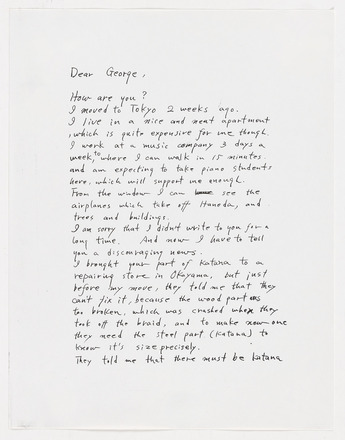 Dear George,
How are you?
I moved to Tokyo 2 weeks ago.
I live in a nice and neat apartment
, which is quite expensive for me though.
I work at a music company 3 days a
week, to where I can walk in 15 minutes.
and am expecting to take piano students
here, which will support me enough.
From the window I can see the
airplanes which take off Haneda, and
trees and buildings.
I am sorry that I didn't write to you for a
long time. And now I have to tell
you a discouraging news.
I brought your part of Katana to a
repairing store in Okayama, but just
before my move, they told me that they
can't fix it, because the wood part was
too broken, which was crashed when they
took off the braid, and to make new one
they need the steel part (Katana) to
know it's size precisely.
They told me that there must be Katana